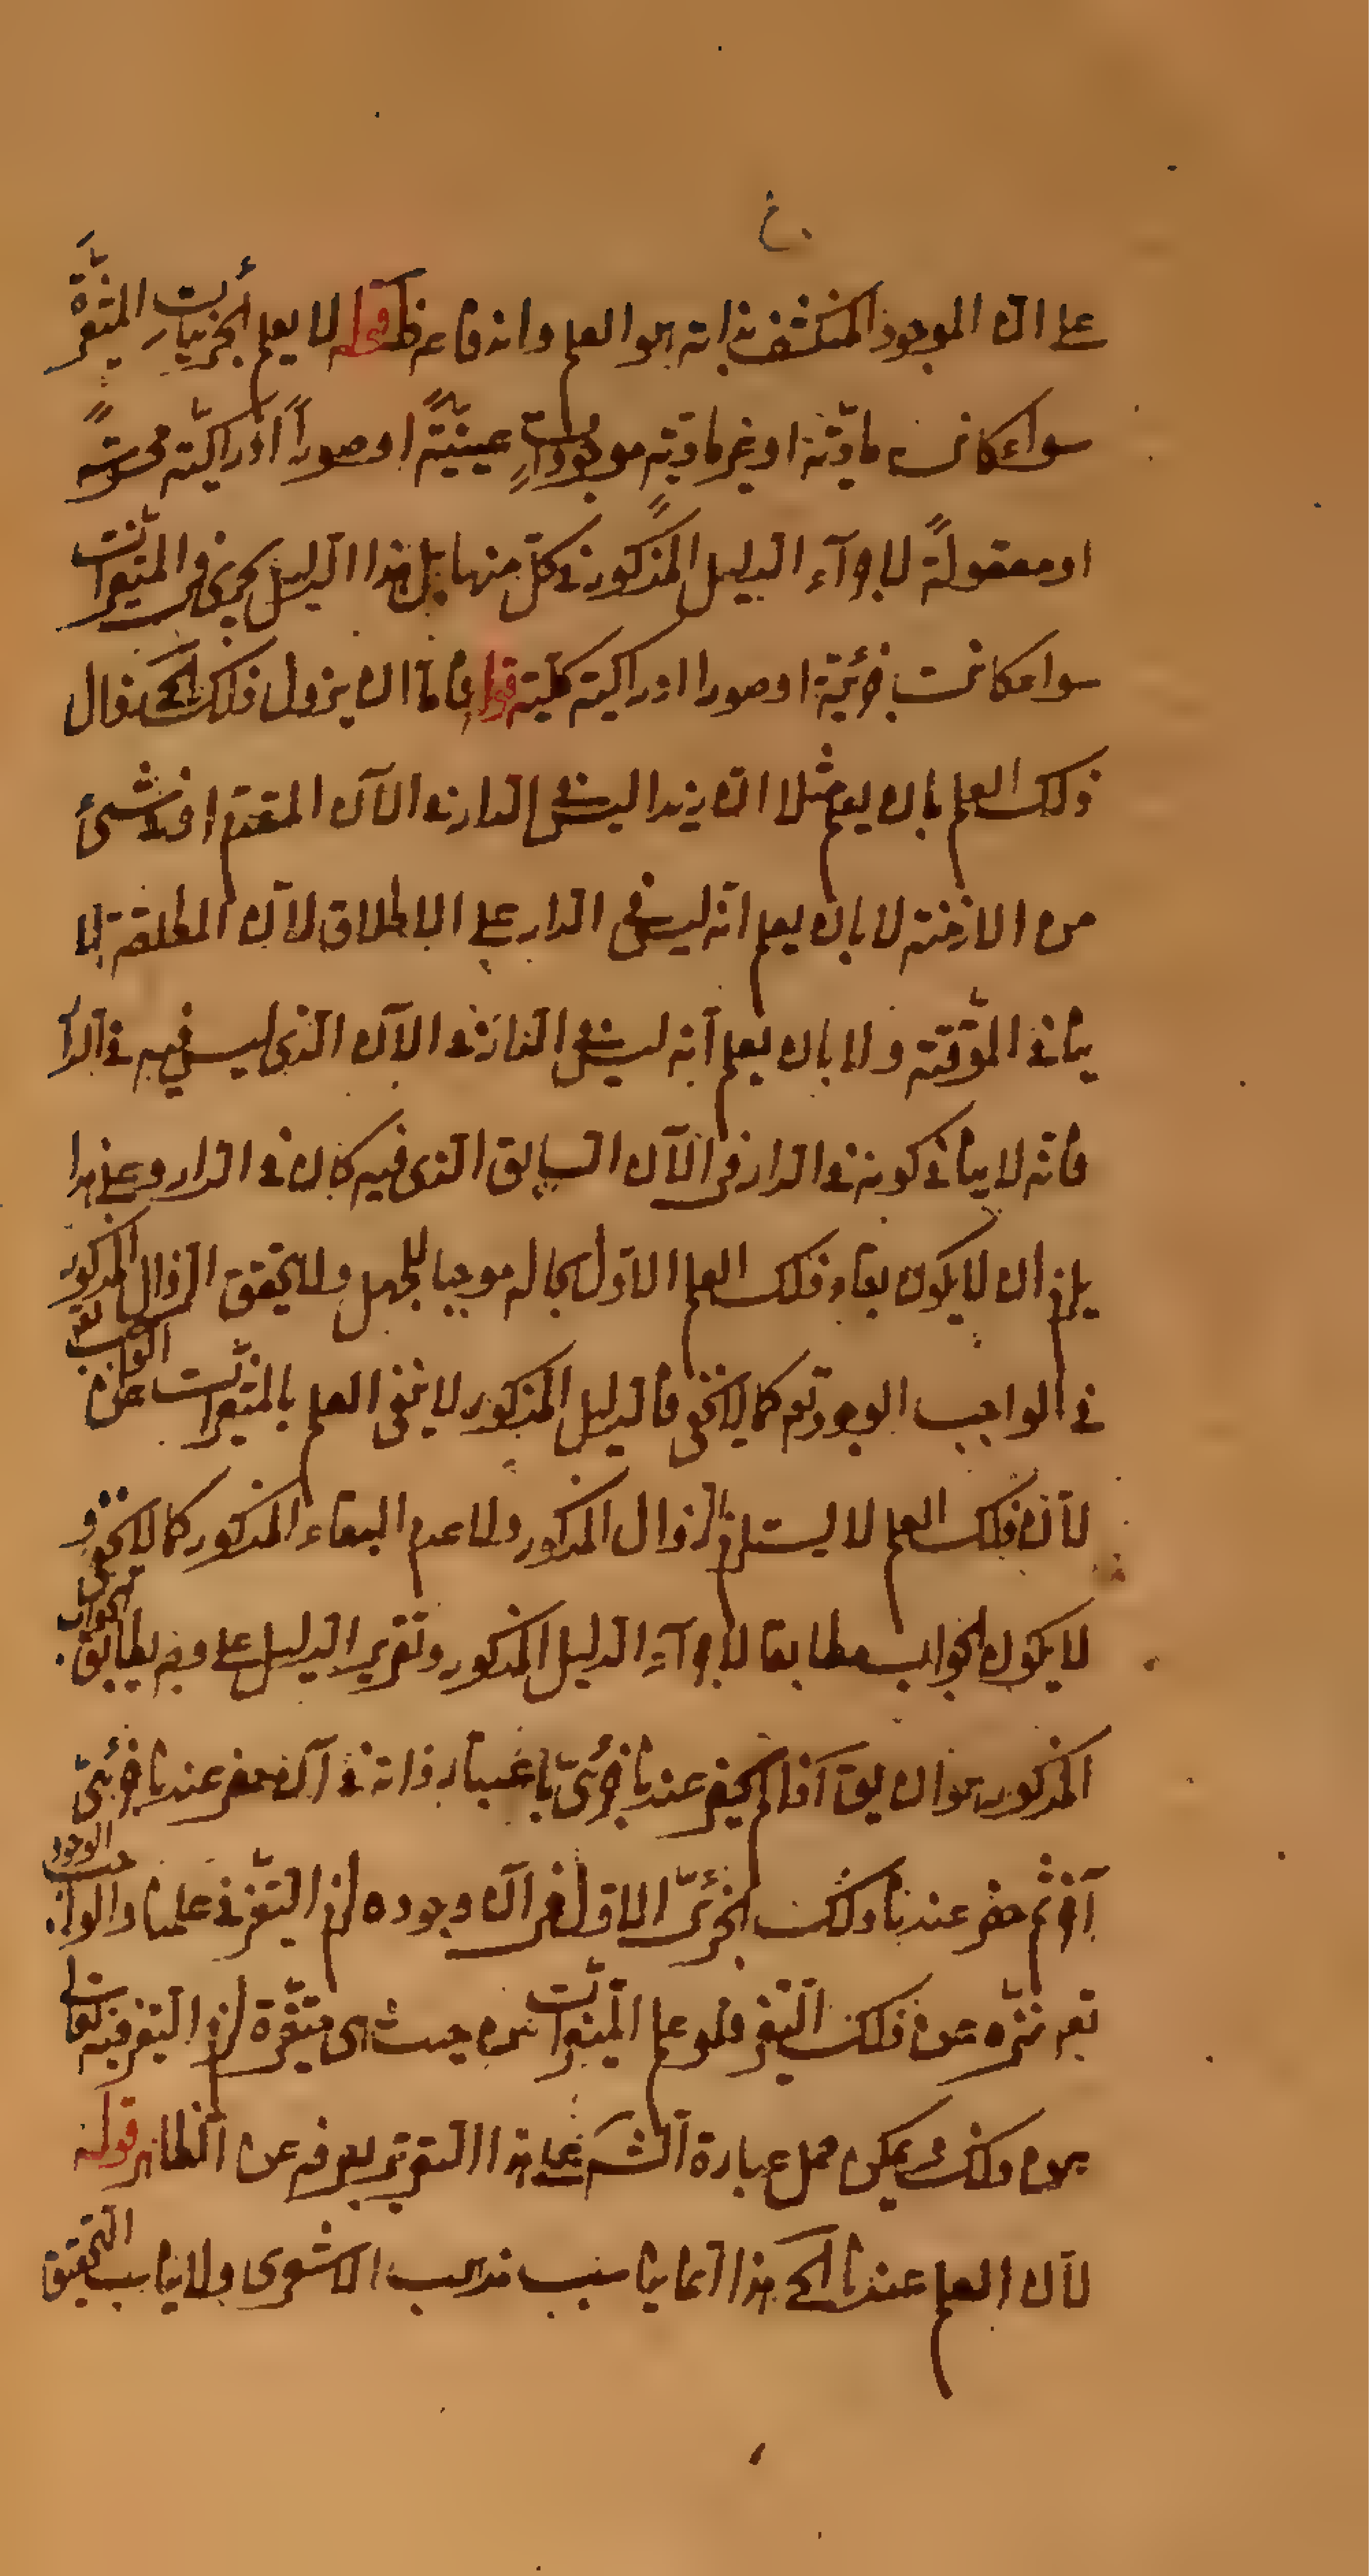 على ان الموجود المنكشف بذاته هو العلم وانه قاعم ظ قوله لا يعلم الجزئيات المتغيرة
سواء كانت مادية او غير مادية موجودات عينية او صورا ادراكية محسوسة
او معقولة لاجراء الدليل المذكور في كل منها بل هذا الدليل يجري في المتغيرات
سواء كانت جزئية او صورا ادراكية كلية قوله فاما ان يزول ذلك الخ فزال
ذلك العلم بان يعلم مثلا ان زيدا ليس في الدار في الآن المقدم او في شئ
من الازمنة لا بان يعلم انه ليس في الدار على الاطلاق لان المطلقة لا
ينافي الموقتة ولا بان يعلم انه ليس في الدار في الآن الذي ليس فيه في الدار
فانه لا ينافي كونه في الدار في الآن السابق الذي فيه كان في الدار وعلى هذا
يلزم ان لا يكون بقاء ذلك العلم الاول بحاله موجبا للجهل ولا يتحقق الزوال المذكور
في الواجب الوجود تعم كما لا يخفى فالدليل المذكور لا ينفي العلم بالمتغيرات عن الواجب تعم
لان ذلك العلم لا يستلزم الزوال المذكور ولا عدم البقاء المذكور كما لا يخفى و
لا يكون الجواب مطابقا لاجراء الدليل المذكور وتقرير الدليل على وجه يطابق الجواب
المذكور هو ان يق اذا لم يحضر عندنا جزئي باعتبار ذاته في آن حضر عندنا جزئي
آخر ثم حضر عندنا ذلك الجزئي الاول في آن وجوده لزم التغير في علمنا والواجب الوجود
تعم منزه عن ذلك التغير فلو علم المتغيرات من حيث هي متغيرة لزم التغير فيه تعالى
عن ذلك ويمكن حمل عبارة الشم على هذا التقرير بصرفه عن الظاهر قوله
لان العلم عندنا الخ هذا انما يناسب مذهب الاشعري ولا يناسب التحقيق